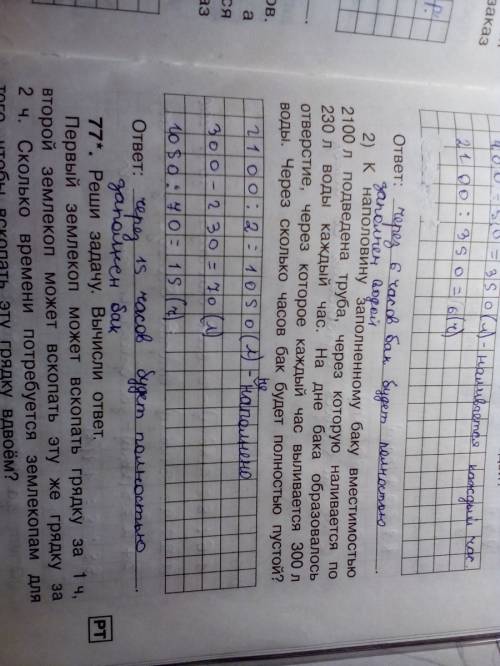 заказ
р.
ов.
а
ся
аз
= 350 (л) - наливается каждый час
2100 : 350 = 6 (ч)
Ответ: через 6 часов бак будет полностью
заполнен водой.
2) К наполовину заполненному баку вместимостью
2100 л подведена труба, через которую наливается по
230 л воды каждый час. На дне бака образовалось
отверстие, через которое каждый час выливается 300 л
воды. Через сколько часов бак будет полностью пустой?
2100 : 2 = 1050 (л) - не наполнено
300 - 230 = 70 (л)
1050 : 70 = 15 (ч)
Ответ: через 15 часов будет полностью
заполнен бак
77*. Реши задачу. Вычисли ответ.
РТ
Первый землекоп может вскопать грядку за 1 ч,
второй землекоп может вскопать эту же грядку за
2 ч. Сколько времени потребуется землекопам для
того, чтобы вскопать эту грядку вдвоём?